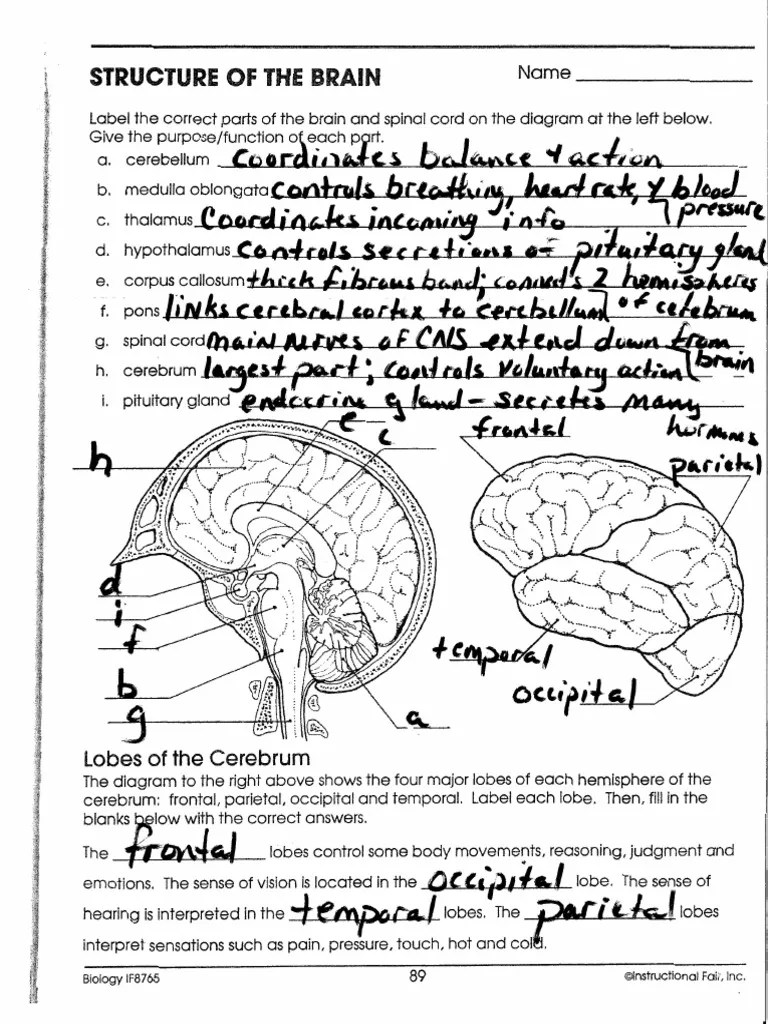 STRUCTURE OF THE BRAIN Name
Label the correct parts of the brain and spinal cord on the diagram at the left below.
Give the purpose/function of each part.
a. cerebellum Coordinates balance & action
b. medulla oblongata controls breathing, heart rate, & blood
pressure
c. thalamus Coordinates incoming info
d. hypothalamus controls secretions of pituitary gland
e. corpus callosum thick fibrous band; connects 2 hemispheres
of cerebrum
f. pons links cerebral cortex to cerebellum
g. spinal cord main nerves of CNS extend down from
brain
h. cerebrum largest part; controls voluntary action
i. pituitary gland endocrine gland - secretes many
hormones
e
c
frontal
h
parietal
d
i
f
temporal
b
occipital
g
a
Lobes of the Cerebrum
The diagram to the right above shows the four major lobes of each hemisphere of the
cerebrum: frontal, parietal, occipital and temporal. Label each lobe. Then, fill in the
blanks below with the correct answers.
The frontal lobes control some body movements, reasoning, judgment and
emotions. The sense of vision is located in the occipital lobe. The sense of
hearing is interpreted in the temporal lobes. The parietal lobes
interpret sensations such as pain, pressure, touch, hot and cold.
Biology IF8765 89 ©Instructional Fair, Inc.